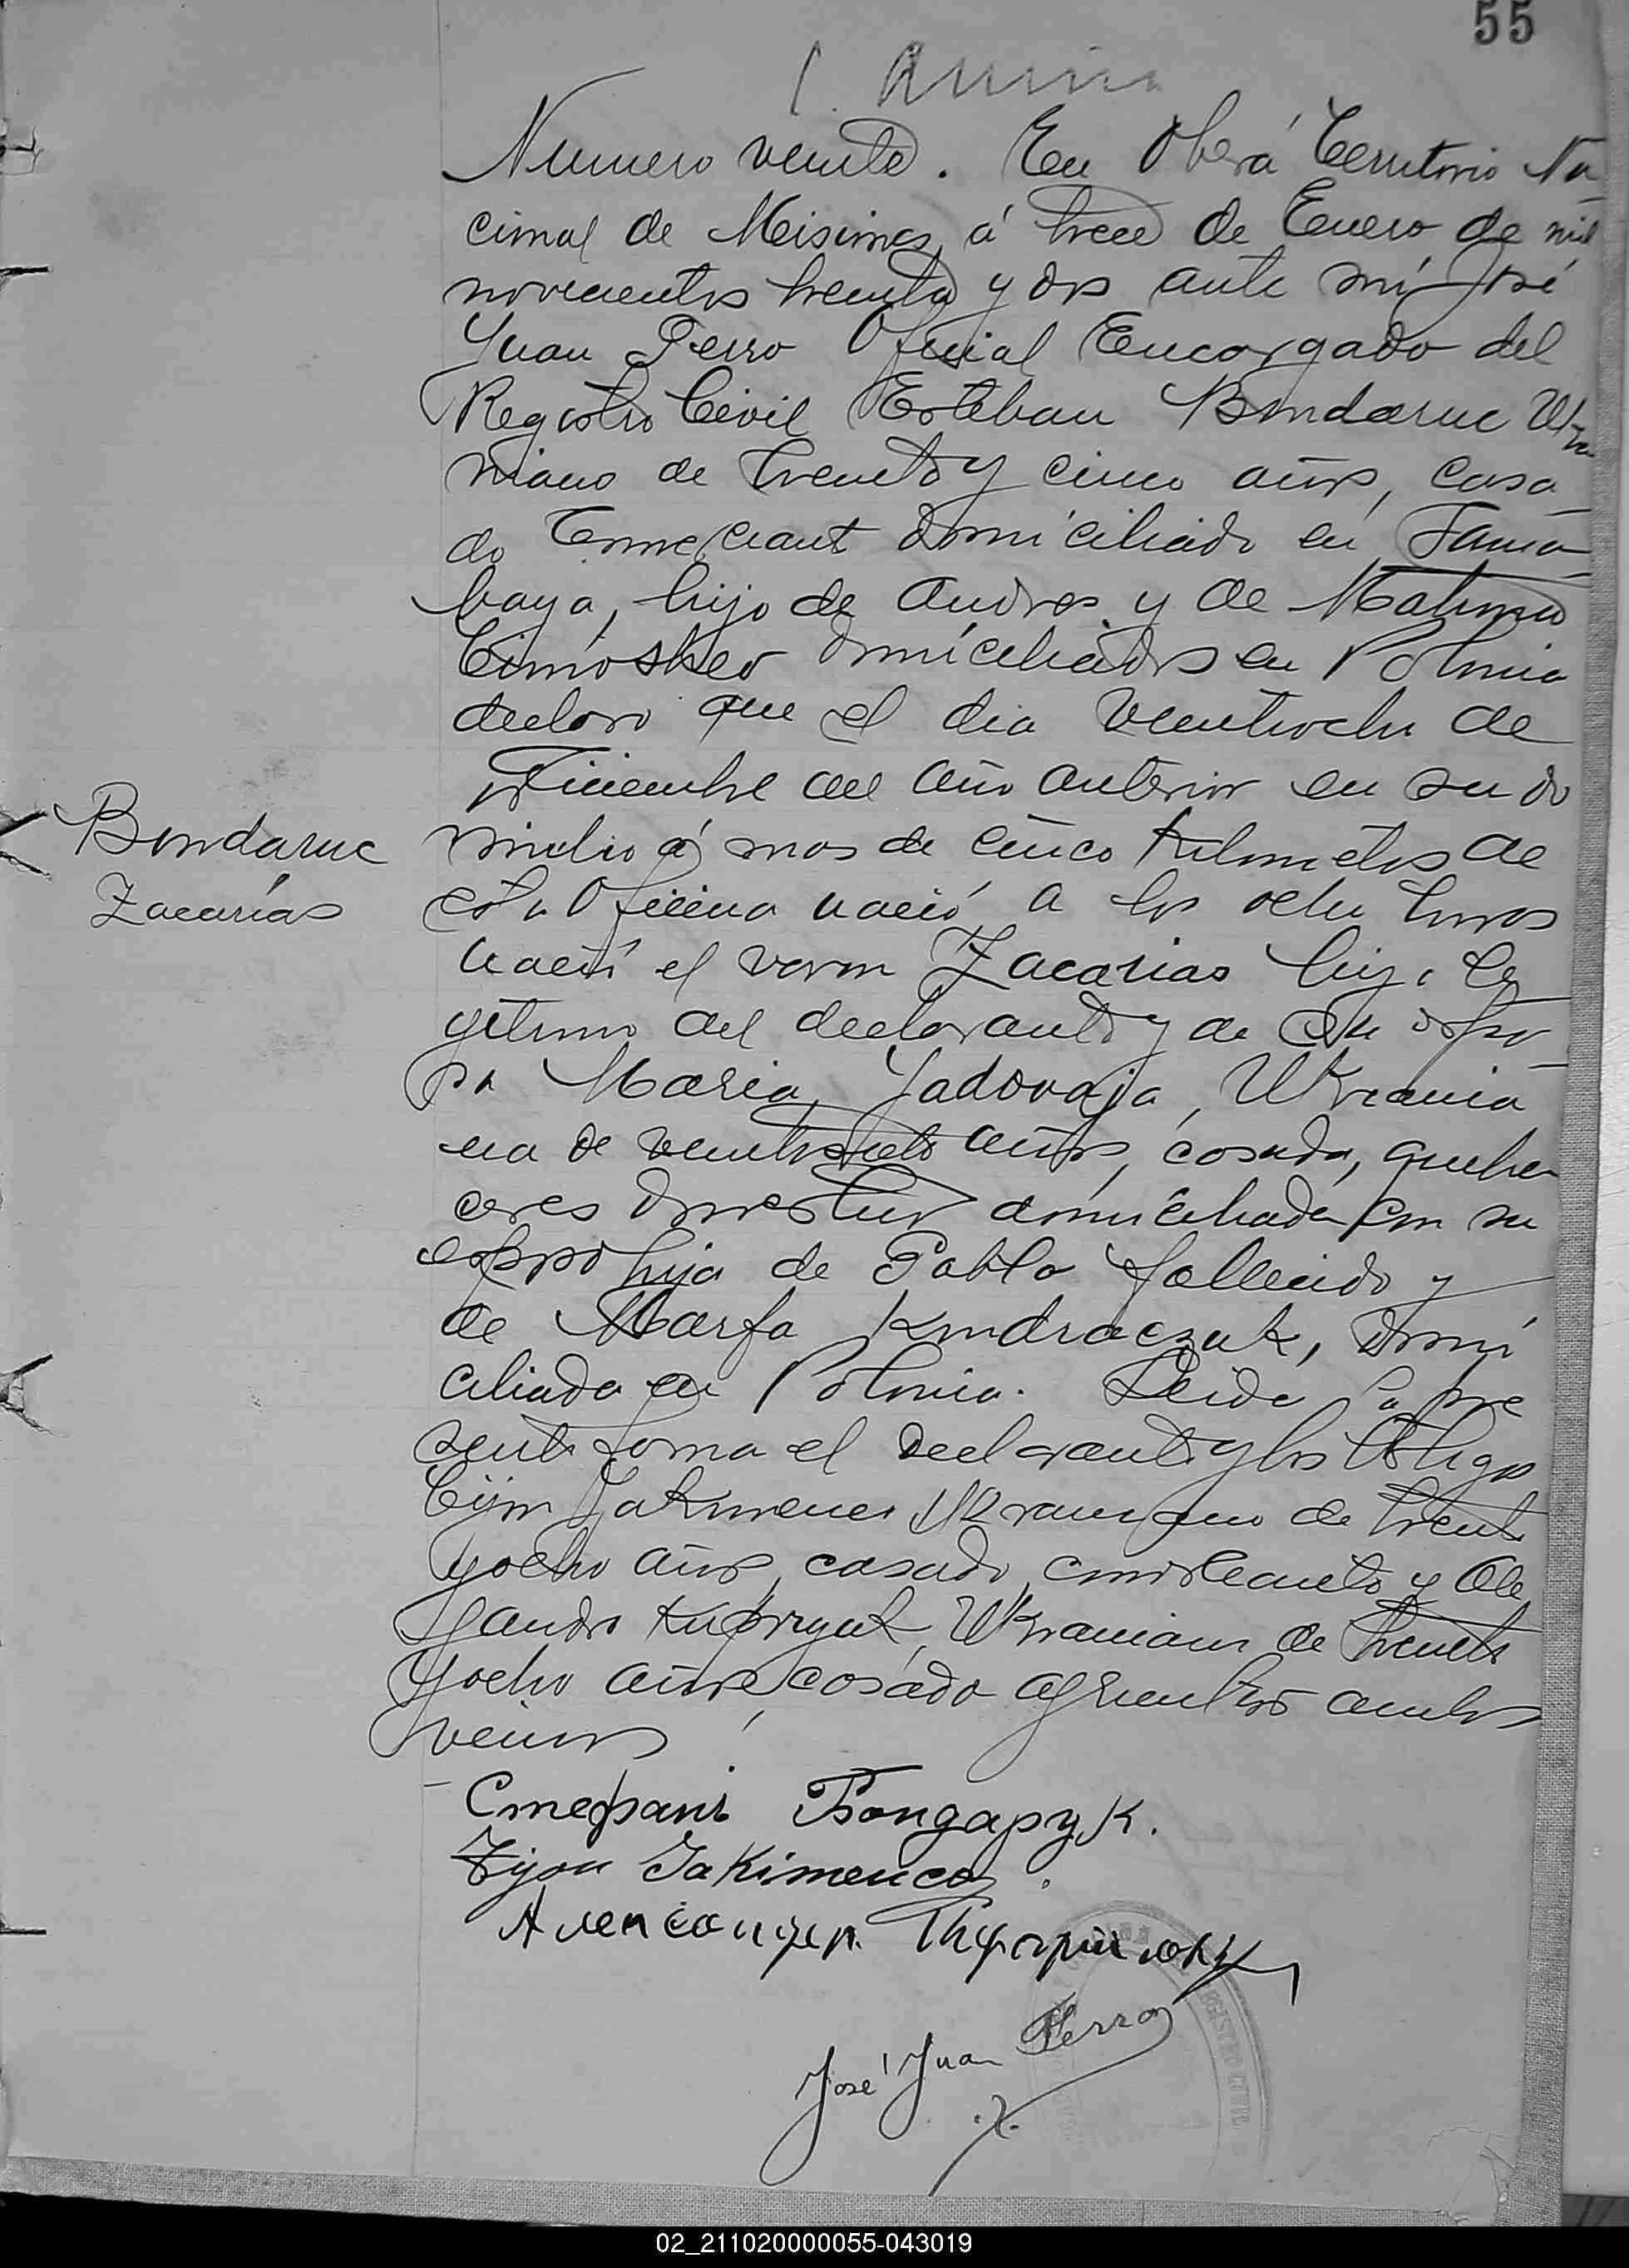 55
Numero veinte. En Oberá Territorio Na
cional de Misiones, á trece de Enero de mil
novecientos treinta y dos ante mí José
Juan Perro Oficial Encargado del
Registro Civil Esteban Bondaruc Ukra
niano de treinta y cinco años, casa
do Comerciante domiciliado en Sama
baya, hijo de Andres y de
domiciliados en Polonia
declaro que el dia veintiocho de
Diciembre del año anterior en su do
micilio á mas de cinco Kilometros de
Bondaruc
Zacarías
esta Oficina nació a las ocho horas
nació el varon Zacarias hijo le
gitimo del declarante y de su espo
sa Maria Jadovaja, Ukrania
na de veintisiete años, casada, queha
ceres domesticos domiciliada con su
esposo hija de Pablo fallecido y
de Marfa Kondraczuk, domi
ciliada en Polonia. Leida la pre
sente firma el declarante y los testigos
Tijon Jakimenco Ukraniano de treinta
y ocho años, casado, comerciante y Ale
jandro Ukraniano de treinta
y ocho años, casado agricultor ambos
vecinos
Стефанъ Бондарук.
Tijon Jakimenco.
José Juan Perro
REGISTRO CIVIL
02_211020000055-043019